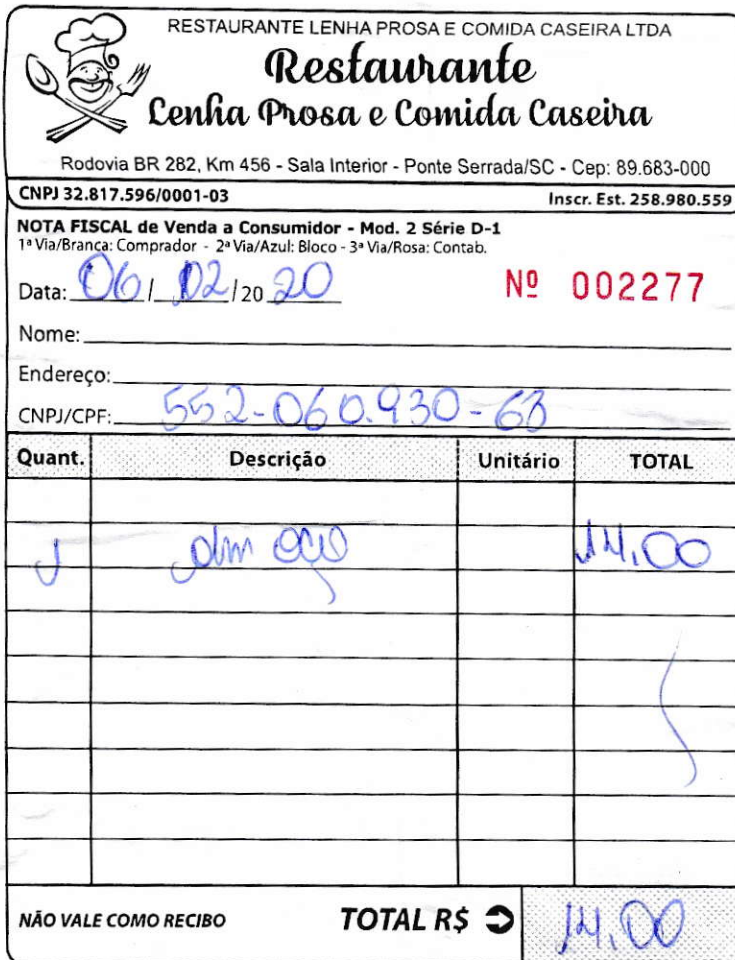 RESTAURANTE LENHA PROSA E COMIDA CASEIRA LTDA
Restaurante
Lenha Prosa e Comida Caseira
Rodovia BR 282, Km 456 - Sala Interior - Ponte Serrada/SC - Cep: 89.683-000
CNPJ 32.817.596/0001-03 Inscr. Est. 258.980.559
NOTA FISCAL de Venda a Consumidor - Mod. 2 Série D-1
1ª Via/Branca: Comprador - 2ª Via/Azul: Bloco - 3ª Via/Rosa: Contab.
Data: 06/02/2020 Nº 002277
Nome:
Endereço:
CNPJ/CPF: 552-060.930-63
Quant. Descrição Unitário TOTAL
1 almoço 14,00
NÃO VALE COMO RECIBO TOTAL R$ 14,00